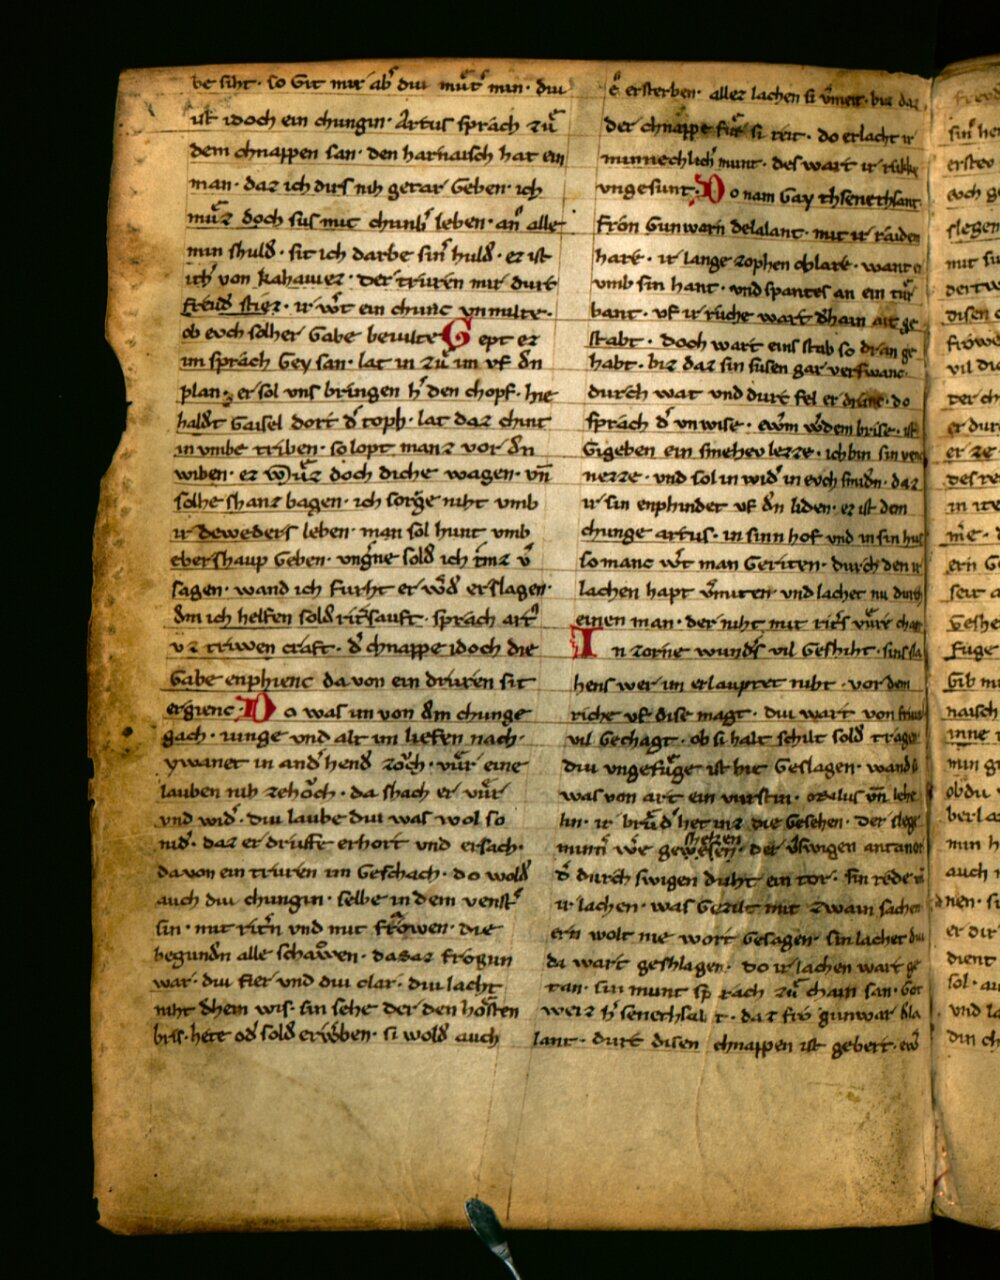 be siht · so Git mir abˀ diu mutˀ min · diu
ist idoch ein chungin · Artus sprach zu
dem chnappen san · den harnasch hat ein
man · daz ich dirs nih getar Geben · ich
muz doch sus mit chumbˀ leben · an alle
min shuld · sit ich darbe sinˀ huld · er ist
ithˀ von kahaviez · der triuren mir durh
freud stiez · ir wˀt ein chunc vnmilte ·
ob evch solher Gabe bevilte Gept er
im sprach Gey san · lat in zu im vf dn
plan · er sol uns bringen hˀ den chopf · hie
haldˀt Gaisel dort dˀ toph · lat daz chint
in umbe triben · so lopt manz vor dn
wiben · ez muz doch diche wagen · vn
solhe shanz bagen · ich sorge niht umb
ir deweders leben · man sol hunt umb
ebershaup Geben · vngˀne sold ich imz vˀ
sagen · wand ich furht er wˀd erslagen ·
dm ich helfen sold ritˀsauft · sprach artˀ
vz triwen craft · dˀ chnappe idoch die
Gabe enphienc da von ein driuren sit
ergienc · Do was im von dm chunge
gach · iunge und alt im liefen nach ·
ywanet in andˀ hend zoch · vur eine
lauben nih zehoch · da shach er vur
vnd widˀ · diu laube diu was wol so
nidˀ · daz er druffe erhort vnd ersach ·
davon ein triuren im Geschach · do wold
auch diu chungin · selbe in dem venstˀ
sin · mit ritˀn vnd mit frowen · die
begundn alle schawen · dasaz frogun
war · diu fier vnd diu clar · diu lacht
niht dhein wis · sin sehe der den hosten
bris · hete od sold erwˀben · si wold auch
e ersterben · allez lachen si vˀmeit · biz daz
der chnappe fur si reit · do erlacht ir
minnechlichˀ munt · des wart ir rukke
vngesunt · Do nam Gay thsenethsant
fron Gunwarn delalant · mit ir raiden
hare · ir lange zophen chlare · want er
vmb sin hant · vnd spantes an ein tur
bant · vf ir ruche wart dhain ait ge
stabt · doch wart eins stab so dran ge
habt · biz daz sin susen gar verswanc ·
durch wat vnd durh fel er dranc · do
sprach dˀ vnwise · ewˀm wˀdem brise · ist
Gigeben ein smehev lezze · ich bin sin ven
nezze · vnd sol in widˀ in evch smidn · daz
ir sin enphindet vf dn liden · ez ist dem
chunge artus · in sinn hof vnd in sin hus
so manc wˀt man Geriten · durch den ir
lachen hapt vˀmiten · vnd lachet nu durh
einen man · der niht mit ritˀs vure chan
In zorne wundˀs vil Geshiht · sins sla
hens wer im erlauptet niht · vor dem
riche vf dise magt · diu wart von friun
vil Gechagt · ob si halt schilt sold tragen
diu ungefuge ist hie Geslagen · wand si
was von art ein vurstin · orilus vn lehe
lin · ir brudˀ hetinz die Gesehen · der slege
minnˀ wˀe gewesen shehen · der vˀswigen antanor
dˀ durch swigen duht ein tor · sin rede vn
ir lachen · was Gezilt mit zwain sachen
ern wolt nie wort Gesagen · sin lachet diu
da wart geshlagen · do ir lachen wart ge
tan · sin munt sprach zu chain san · Got
weiz hˀ senethsalt · daz fro gunwar dla
lant · durh disen chnappen ist gebert · ewˀ